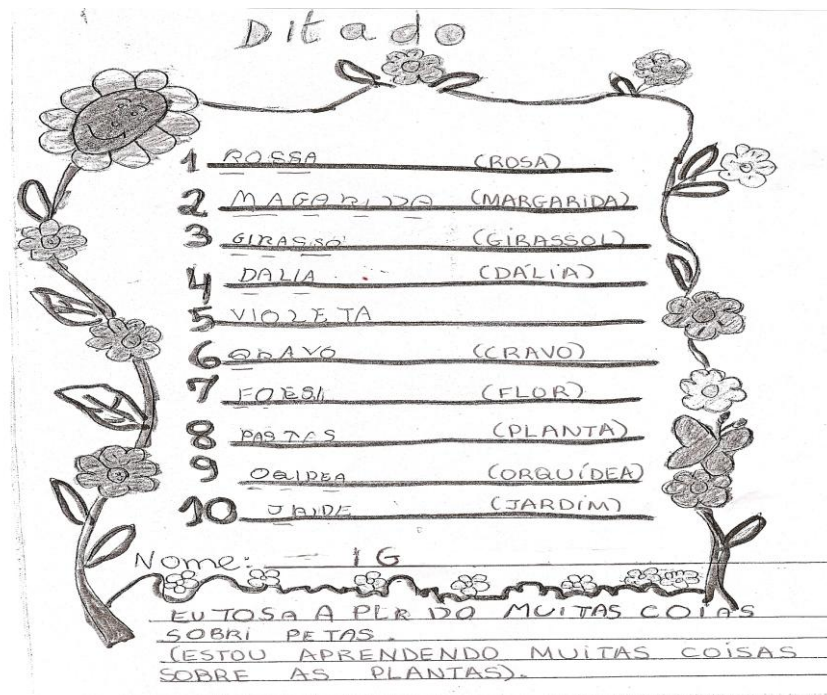 Ditado
1 ROSSA (ROSA)
2 MAGARIDA (MARGARIDA)
3 GIRASSO (GIRASSOL)
4 DALIA (DÁLIA)
5 VIOLETA
6 QRAVO (CRAVO)
7 FOESI (FLOR)
8 (PLANTA)
9 OQIDEA (ORQUÍDEA)
10 JAIDE (JARDIM)
Nome: IG
EU TOSA A PLR DO MUITAS COIAS
SOBRI PETAS.
(ESTOU APRENDENDO MUITAS COISAS
SOBRE AS PLANTAS).